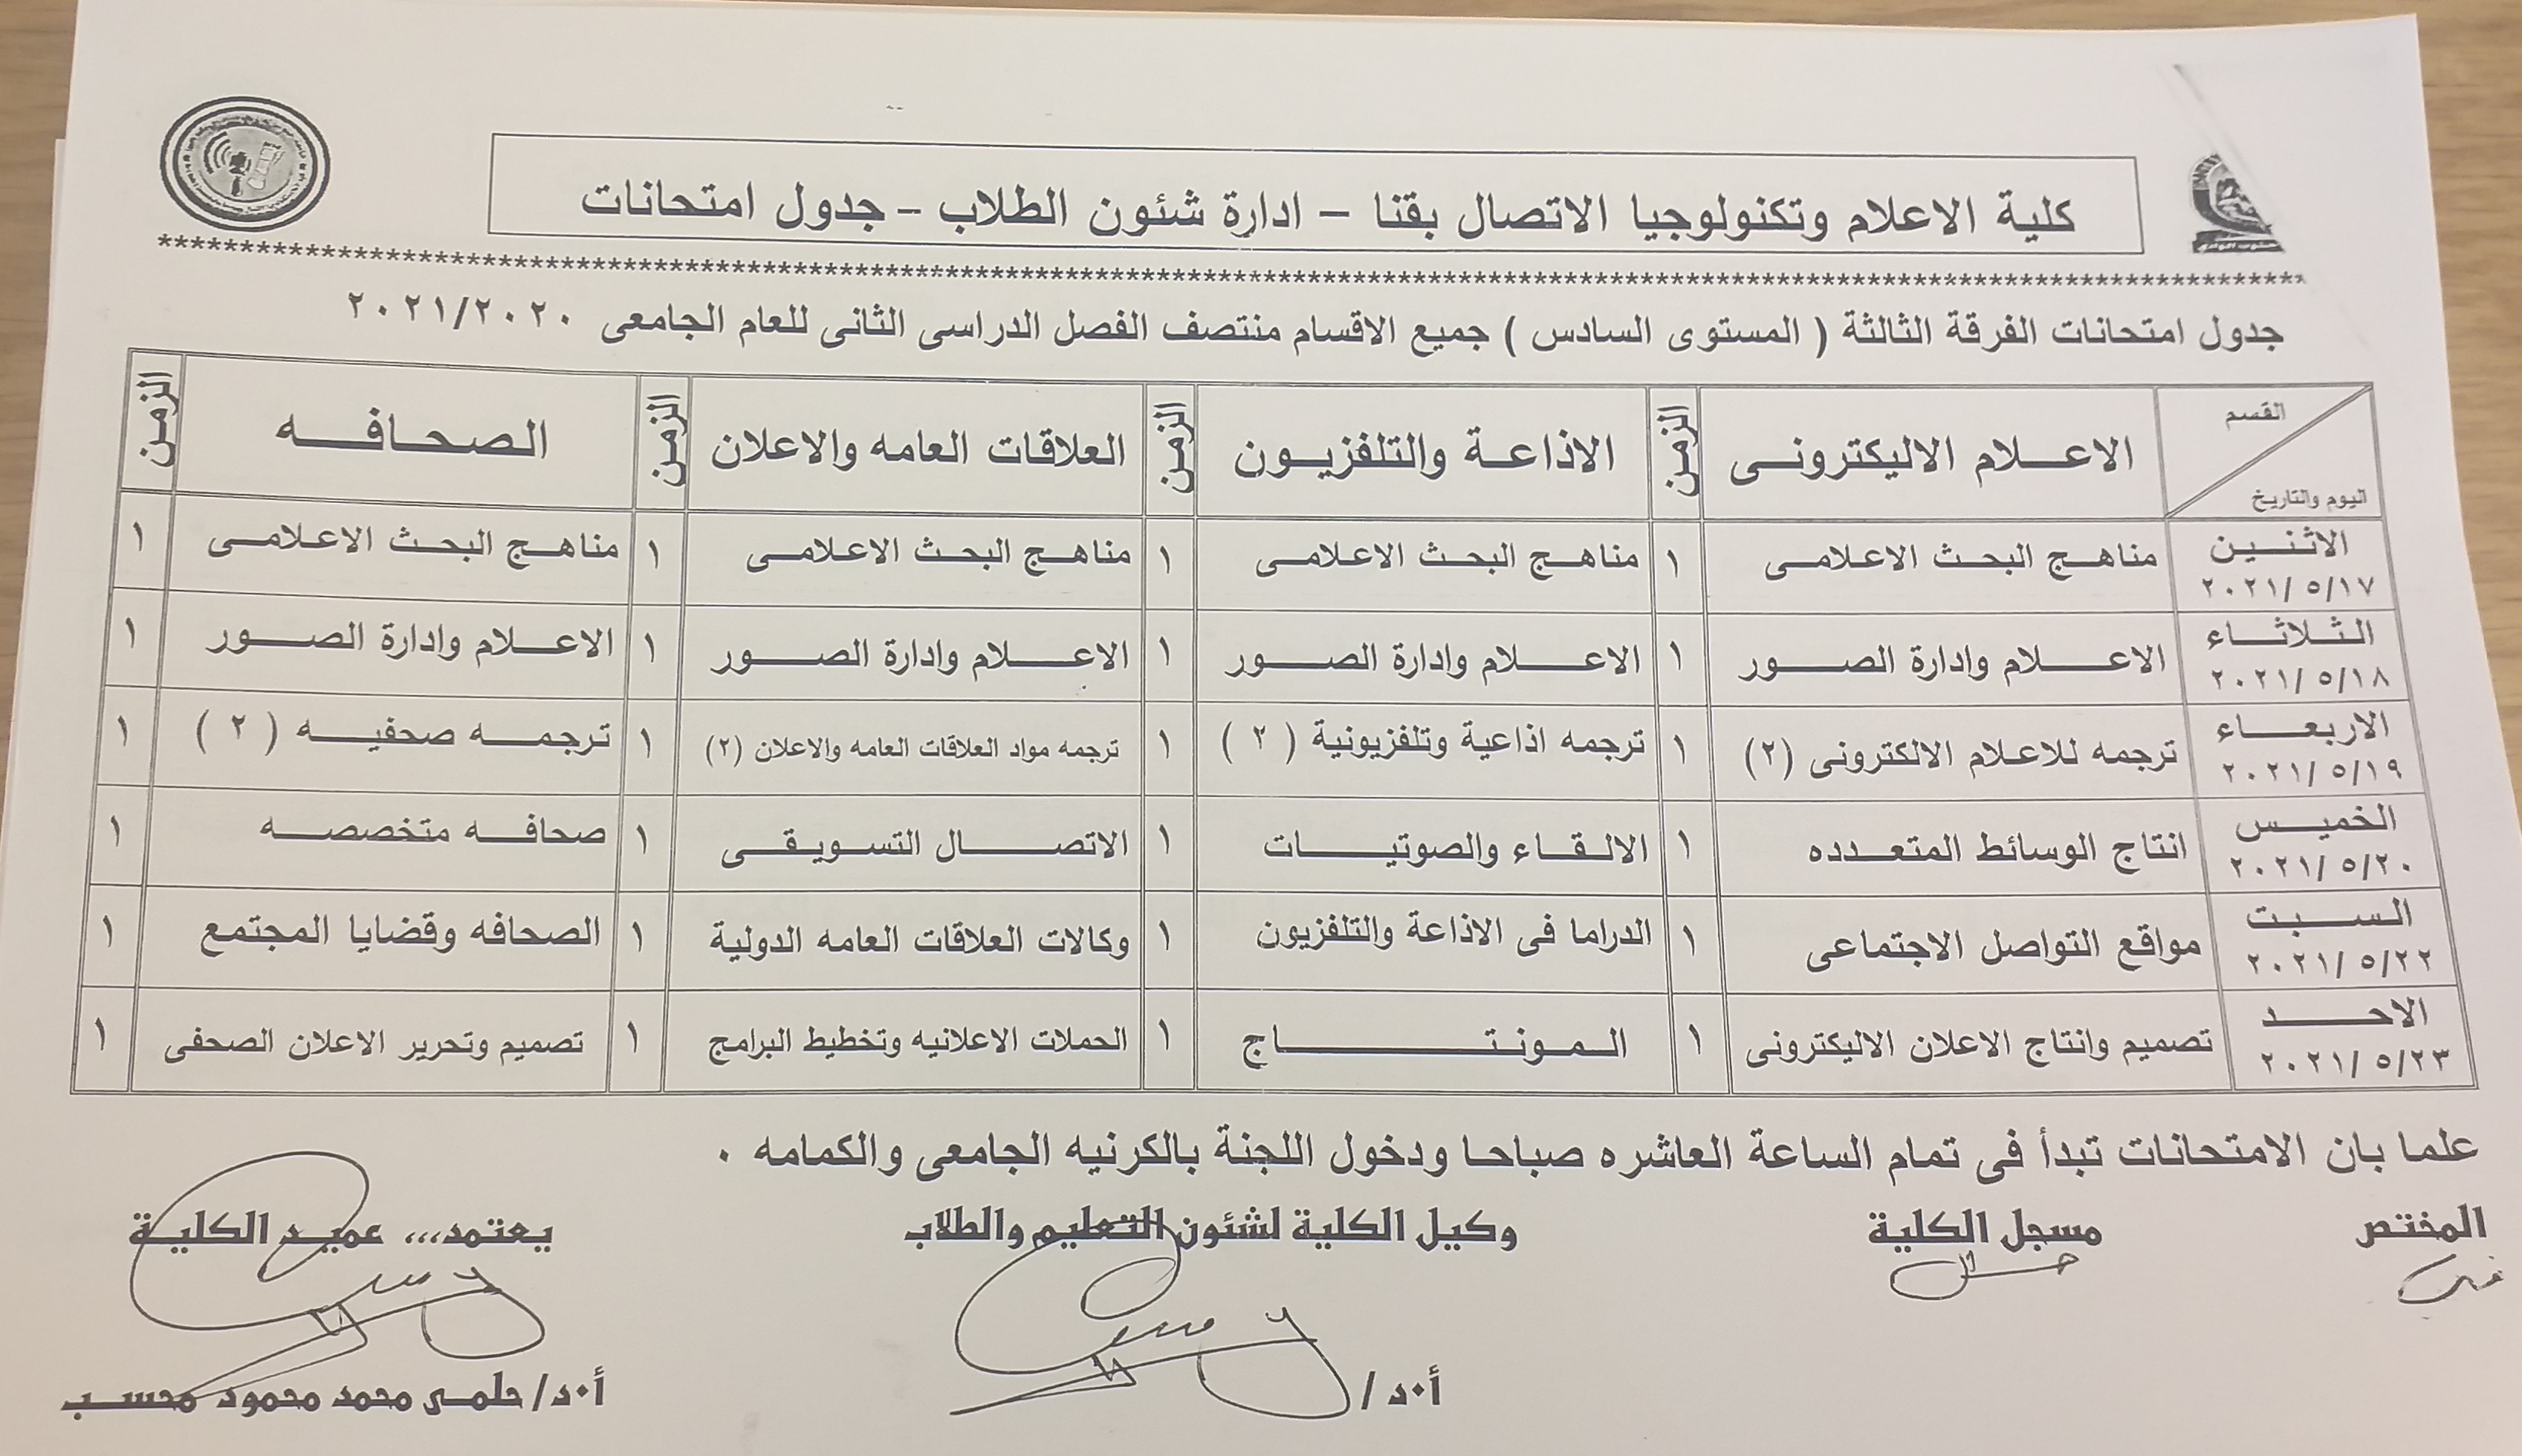 كلية الاعلام وتكنولوجيا الاتصال بقنا – ادارة شئون الطلاب – جدول امتحانات
********************************************************************************
جدول امتحانات الفرقة الثالثة ( المستوى السادس ) جميع الاقسام منتصف الفصل الدراسى الثانى للعام الجامعى ٢٠٢١/٢٠٢٠
القسم
اليوم والتاريخ
الاعلام الاليكترونى الزمن الاذاعة والتلفزيون الزمن العلاقات العامه والاعلان الزمن الصحافه الزمن
الاثنين ٢٠٢١/٥/١٧ مناهج البحث الاعلامى ١ مناهج البحث الاعلامى ١ مناهج البحث الاعلامى ١ مناهج البحث الاعلامى ١
الثلاثاء ٢٠٢١/٥/١٨ الاعلام وادارة الصور ١ الاعلام وادارة الصور ١ الاعلام وادارة الصور ١ الاعلام وادارة الصور ١
الاربعاء ٢٠٢١/٥/١٩ ترجمه للاعلام الالكترونى (٢) ١ ترجمه اذاعية وتلفزيونية ( ٢ ) ١ ترجمه مواد العلاقات العامه والاعلان (٢) ١ ترجمه صحفيه ( ٢ ) ١
الخميس ٢٠٢١/٥/٢٠ انتاج الوسائط المتعدده ١ الالقاء والصوتيات ١ الاتصال التسويقى ١ صحافه متخصصه ١
السبت ٢٠٢١/٥/٢٢ مواقع التواصل الاجتماعى ١ الدراما فى الاذاعة والتلفزيون ١ وكالات العلاقات العامه الدولية ١ الصحافه وقضايا المجتمع ١
الاحد ٢٠٢١/٥/٢٣ تصميم وانتاج الاعلان الاليكترونى ١ المونتاج ١ الحملات الاعلانيه وتخطيط البرامج ١ تصميم وتحرير الاعلان الصحفى ١
علما بان الامتحانات تبدأ فى تمام الساعة العاشره صباحا ودخول اللجنة بالكرنيه الجامعى والكمامه .
المختص مسجل الكلية وكيل الكلية لشئون التعليم والطلاب يعتمد،،، عميد الكلية
أ.د/ أ.د/ حلمى محمد محمود محسب